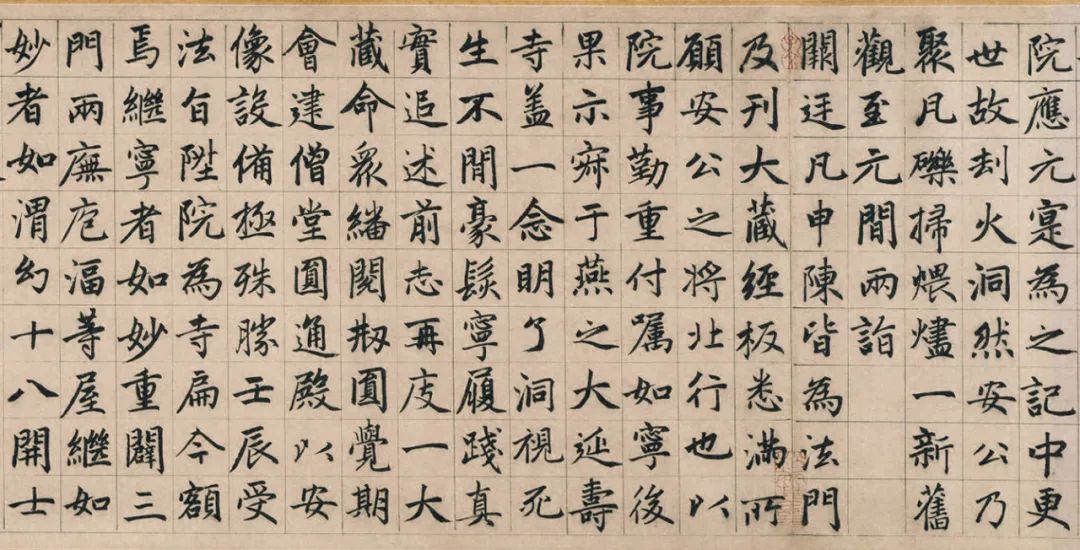 院應元寔為之記中更
世故刦火洞然安公乃
聚凡礫掃煨燼一新舊
觀至元間兩詣
闕廷凡申陳皆為法門
及刊大藏經板悉滿所
願安公之將北行也以
院事勤重付囑如寧後
果示寂于燕之大延壽
寺盖一念明了洞視死
生不間豪髮寧履踐真
實追述前志再庋一大
藏命衆繙閱刱圓覺期
會建僧堂圓通殿以安
像設備極殊勝壬辰受
法旨陞院為寺扁今額
焉繼寧者如妙重闢三
門兩廡庖湢等屋繼如
妙者如渭幻十八開士